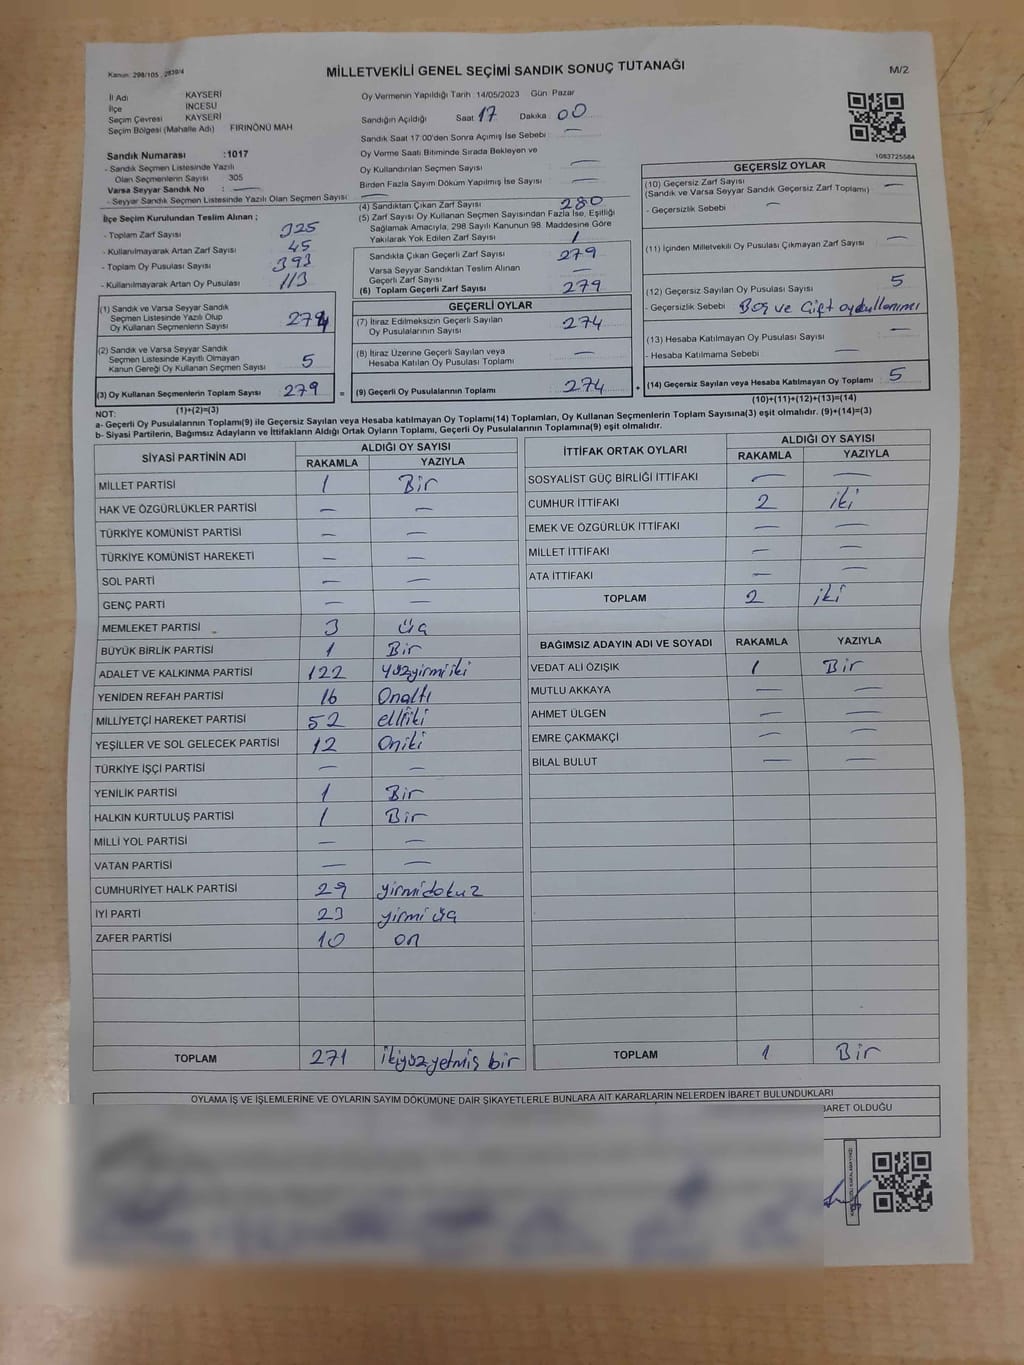 Kanun: 298/105, 2839/4
MİLLETVEKİLİ GENEL SEÇİMİ SANDIK SONUÇ TUTANAĞI
M/2
İl Adı KAYSERİ
İlçe İNCESU
Seçim Çevresi KAYSERİ
Seçim Bölgesi (Mahalle Adı) FIRINÖNÜ MAH
Sandık Numarası :1017
- Sandık Seçmen Listesinde Yazılı
Olan Seçmenlerin Sayısı 305
Varsa Seyyar Sandık No : —
- Seyyar Sandık Seçmen Listesinde Yazılı Olan Seçmen Sayısı: —
İlçe Seçim Kurulundan Teslim Alınan ;
- Toplam Zarf Sayısı 325
- Kullanılmayarak Artan Zarf Sayısı 45
- Toplam Oy Pusulası Sayısı 393
- Kullanılmayarak Artan Oy Pusulası 113
(1) Sandık ve Varsa Seyyar Sandık
Seçmen Listesinde Yazılı Olup
Oy Kullanan Seçmenlerin Sayısı 274
(2) Sandık ve Varsa Seyyar Sandık
Seçmen Listesinde Kayıtlı Olmayan
Kanun Gereği Oy Kullanan Seçmen Sayısı 5
(3) Oy Kullanan Seçmenlerin Toplam Sayısı 279 =
(1)+(2)=(3)
Oy Vermenin Yapıldığı Tarih :14/05/2023 Gün: Pazar
Sandığın Açıldığı Saat 17 Dakika : 00
Sandık Saat 17:00'den Sonra Açımış İse Sebebi : —
Oy Verme Saati Bitiminde Sırada Bekleyen ve
Oy Kullandırılan Seçmen Sayısı —
Birden Fazla Sayım Döküm Yapılmış İse Sayısı —
(4) Sandıktan Çıkan Zarf Sayısı 280
(5) Zarf Sayısı Oy Kullanan Seçmen Sayısından Fazla İse, Eşitliği
Sağlamak Amacıyla, 298 Sayılı Kanunun 98. Maddesine Göre
Yakılarak Yok Edilen Zarf Sayısı 1
Sandıkta Çıkan Geçerli Zarf Sayısı 279
Varsa Seyyar Sandıktan Teslim Alınan
Geçerli Zarf Sayısı —
(6) Toplam Geçerli Zarf Sayısı 279
GEÇERLİ OYLAR
(7) İtiraz Edilmeksizin Geçerli Sayılan
Oy Pusulalarının Sayısı 274
(8) İtiraz Üzerine Geçerli Sayılan veya
Hesaba Katılan Oy Pusulası Toplamı —
(9) Geçerli Oy Pusulalarının Toplamı 274 +
1083725584
GEÇERSİZ OYLAR
(10) Geçersiz Zarf Sayısı —
(Sandık ve Varsa Seyyar Sandık Geçersiz Zarf Toplamı)
- Geçersizlik Sebebi —
(11) İçinden Milletvekili Oy Pusulası Çıkmayan Zarf Sayısı —
(12) Geçersiz Sayılan Oy Pusulası Sayısı 5
- Geçersizlik Sebebi Boş ve Çift oy kullanımı
(13) Hesaba Katılmayan Oy Pusulası Sayısı —
- Hesaba Katılmama Sebebi —
(14) Geçersiz Sayılan veya Hesaba Katılmayan Oy Toplamı 5
(10)+(11)+(12)+(13)=(14)
NOT:
a- Geçerli Oy Pusulalarının Toplamı(9) ile Geçersiz Sayılan veya Hesaba katılmayan Oy Toplamı(14) Toplamları, Oy Kullanan Seçmenlerin Toplam Sayısına(3) eşit olmalıdır. (9)+(14)=(3)
b- Siyasi Partilerin, Bağımsız Adayların ve İttifakların Aldığı Ortak Oyların Toplamı, Geçerli Oy Pusulalarının Toplamına(9) eşit olmalıdır.
SİYASİ PARTİNİN ADI ALDIĞI OY SAYISI
RAKAMLA YAZIYLA
MİLLET PARTİSİ 1 Bir
HAK VE ÖZGÜRLÜKLER PARTİSİ — —
TÜRKİYE KOMÜNİST PARTİSİ — —
TÜRKİYE KOMÜNİST HAREKETİ — —
SOL PARTİ — —
GENÇ PARTİ — —
MEMLEKET PARTİSİ 3 Üç
BÜYÜK BİRLİK PARTİSİ 1 Bir
ADALET VE KALKINMA PARTİSİ 122 Yüzyirmi iki
YENİDEN REFAH PARTİSİ 16 Onaltı
MİLLİYETÇİ HAREKET PARTİSİ 52 elliiki
YEŞİLLER VE SOL GELECEK PARTİSİ 12 Oniki
TÜRKİYE İŞÇİ PARTİSİ — —
YENİLİK PARTİSİ 1 Bir
HALKIN KURTULUŞ PARTİSİ 1 Bir
MİLLİ YOL PARTİSİ — —
VATAN PARTİSİ — —
CUMHURİYET HALK PARTİSİ 29 yirmidokuz
İYİ PARTİ 23 yirmi üç
ZAFER PARTİSİ 10 on
TOPLAM 271 ikiyüzyetmiş bir
İTTİFAK ORTAK OYLARI ALDIĞI OY SAYISI
RAKAMLA YAZIYLA
SOSYALİST GÜÇ BİRLİĞİ İTTİFAKI — —
CUMHUR İTTİFAKI 2 iki
EMEK VE ÖZGÜRLÜK İTTİFAKI — —
MİLLET İTTİFAKI — —
ATA İTTİFAKI — —
TOPLAM 2 iki
BAĞIMSIZ ADAYIN ADI VE SOYADI RAKAMLA YAZIYLA
VEDAT ALİ ÖZIŞIK 1 Bir
MUTLU AKKAYA — —
AHMET ÜLGEN — —
EMRE ÇAKMAKÇI — —
BİLAL BULUT — —
TOPLAM 1 Bir
OYLAMA İŞ VE İŞLEMLERİNE VE OYLARIN SAYIM DÖKÜMÜNE DAİR ŞİKAYETLERLE BUNLARA AİT KARARLARIN NELERDEN İBARET BULUNDUKLARI
BARET OLDUĞU